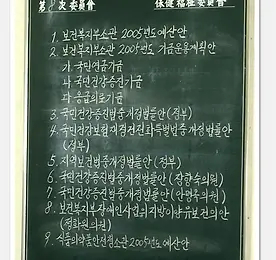 第8次委員會 保健福祉委員會
1. 보건복지부소관 2005년도 예산안
2. 보건복지부소관 2005년도 기금운용계획안
가. 국민연금기금
나. 국민건강증진기금
다. 응급의료기금
3. 국민건강증진법중개정법률안 (정부)
4. 국민건강보험재정건전화특별법중개정법률안
(정부)
5. 지역보건법중개정법률안 (정부)
6. 국민건강증진법중개정법률안 (장향숙의원)
7. 국민건강증진법중개정법률안 (안명옥의원)
8. 보건복지부장애인사업의지방이양유보건의안
(정화원의원)
9. 식품의약품안전청소관 2005년도 예산안